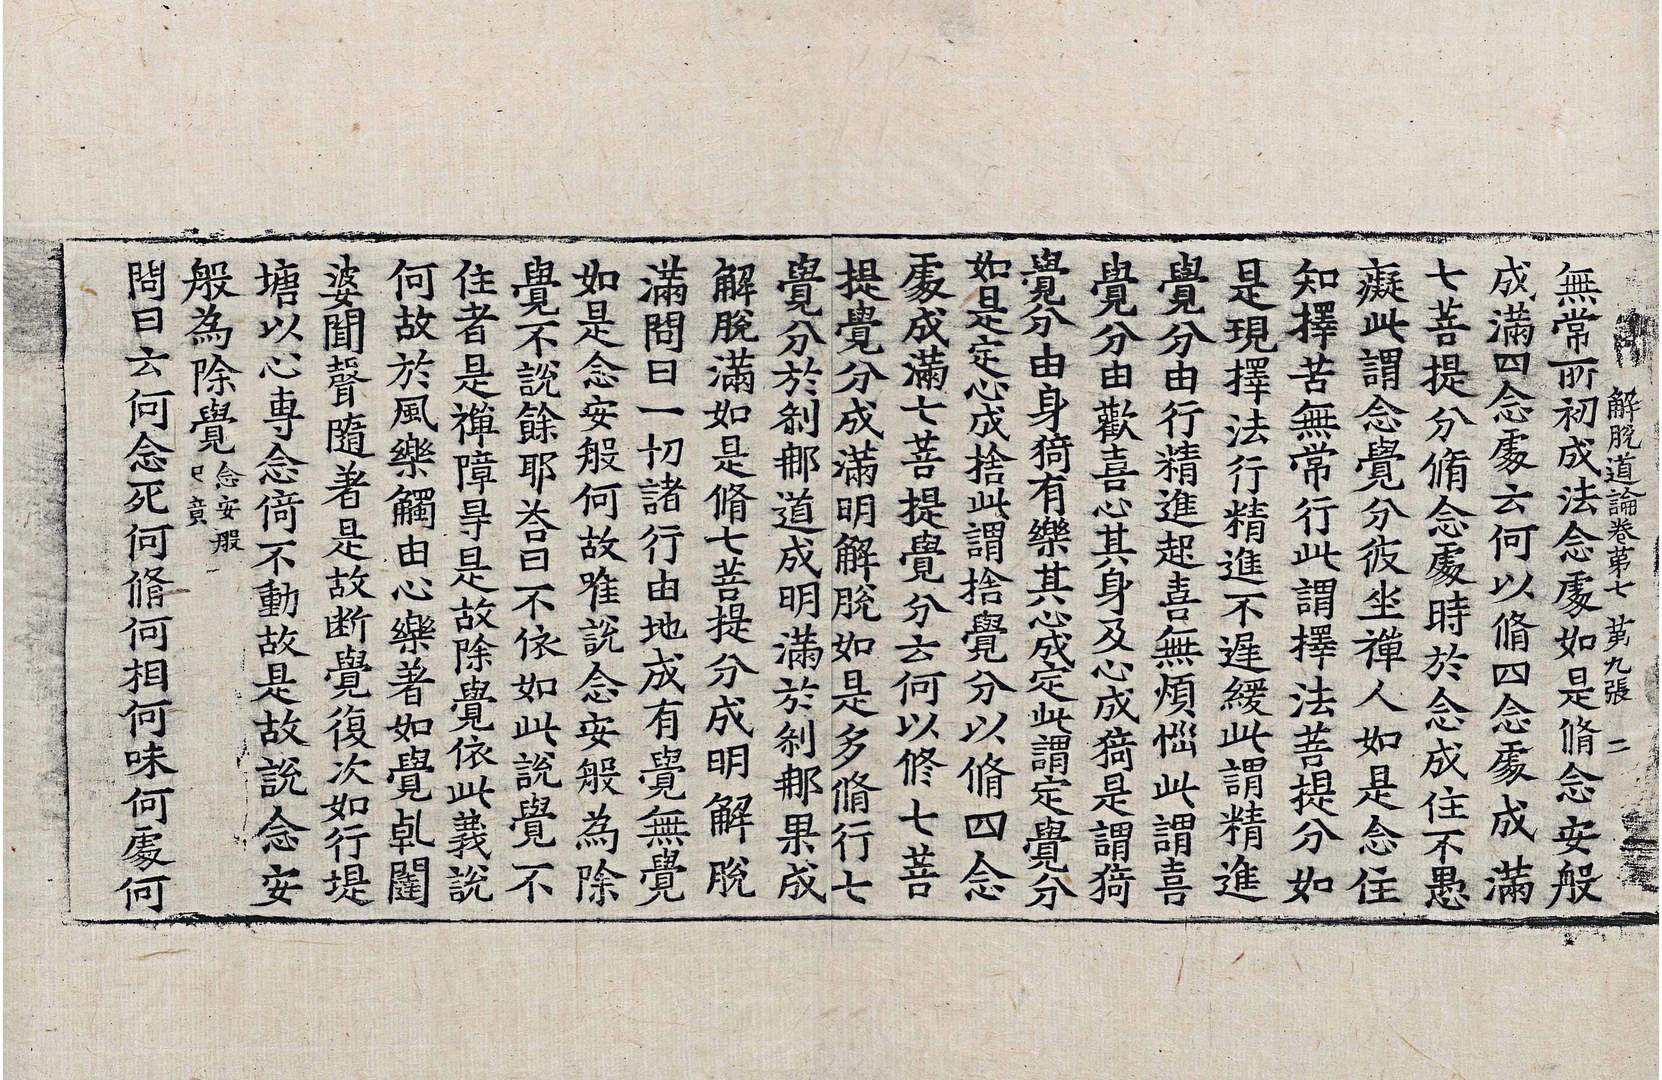 解脫道論卷第七　第九張　二
無常所初成法念處如是脩念安般
成滿四念處云何以脩四念處成滿
七菩提分脩念處時於念成住不愚
癡此謂念覺分彼坐禪人如是念住
知擇苦無常行此謂擇法菩提分如
是現擇法行精進不遲緩此謂精進
覺分由行精進起喜無煩惱此謂喜
覺分由歡喜心其身及心成猗是謂猗
覺分由身猗有樂其心成定此謂定覺分
如是定心成捨此謂捨覺分以脩四念
處成滿七菩提覺分云何以修七菩
提覺分成滿明解脫如是多脩行七
覺分於剎那道成明滿於剎那果成
解脫滿如是脩七菩提分成明解脫
滿問曰一切諸行由地成有覺無覺
如是念安般何故唯說念安般為除
覺不說餘耶荅曰不依如此說覺不
住者是禪障㝵是故除覺依此義說
何故於風樂觸由心樂著如覺乹闥
婆聞聲隨著是故断覺復次如行堤
塘以心專念倚不動故是故說念安
般為除覺念安般已竟
問曰云何念死何脩何相何味何處何